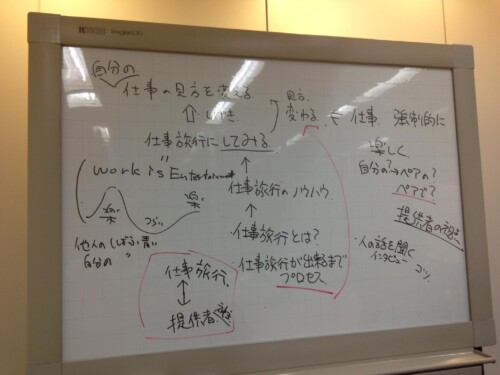 自分の
仕事の見方を変える
見方
変わる
← 仕事 強制的に
仕事旅行にしてみる
楽しく
"Work is" Entertainment
自分の?→ペアの?
ペアで?
仕事旅行のノウハウ
楽
楽
つらい
提供者の
仕事旅行とは?
・人の話を聞く
インタビュー
コツ
他人の しばふ 青い
自分の 〃
仕事旅行が出来るまで
プロセス
仕事旅行
提供者